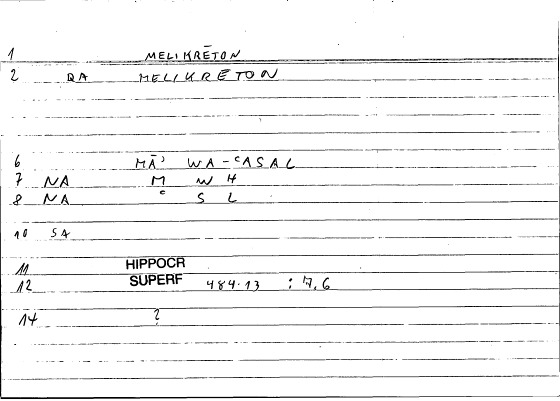 1 MELIKRĒTON
2 RA MELIKRĒTON
6 MĀʾ WA-ʿASAL
7 NA M W H
8 NA ʿ S L
10 SA
11 HIPPOCR
12 SUPERF 484.13 : 7.6
14 ?